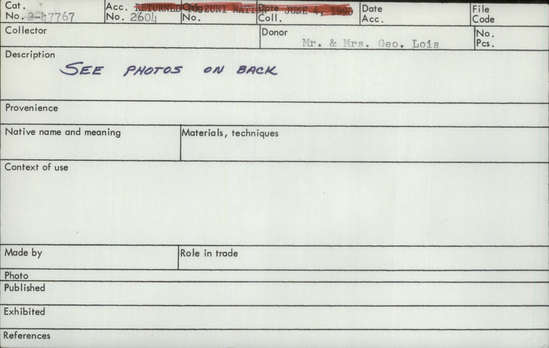 Cat. Acc. Date Date File
No. 2-47767 No. 2604 No. Coll. Acc. Code
RETURNED TO ZUNI NATION JUNE 4,
Collector Donor No.
Mr. & Mrs. Geo. Lois Pcs.
Description
SEE PHOTOS ON BACK
Provenience
Native name and meaning Materials, techniques
Context of use
Made by Role in trade
Photo
Published
Exhibited
References